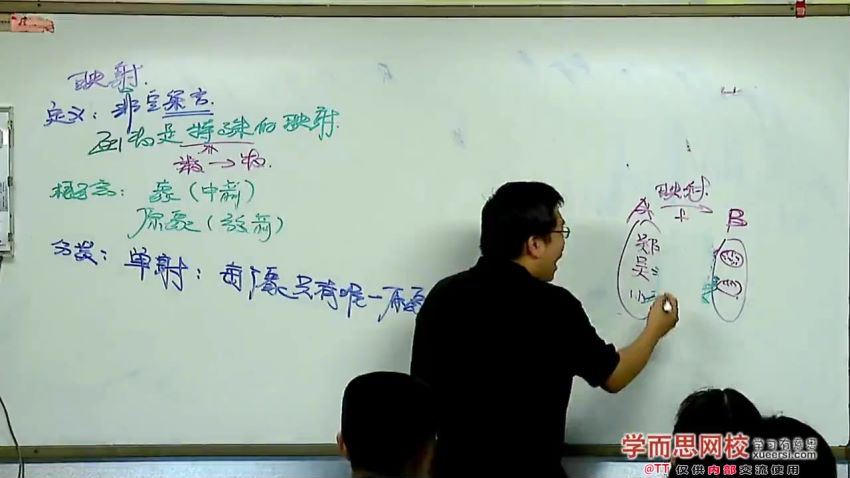 映射.
定义: 非空集合.
函数是特殊的映射.
数→数.
概念: 象(中箭)
原象(放箭)
分类: 单射: 每个象只有唯一原象
映射.
A
f
B
郑
吴
学而思网校
学习有意思
xueersi.com
@TT 仅供内部交流使用